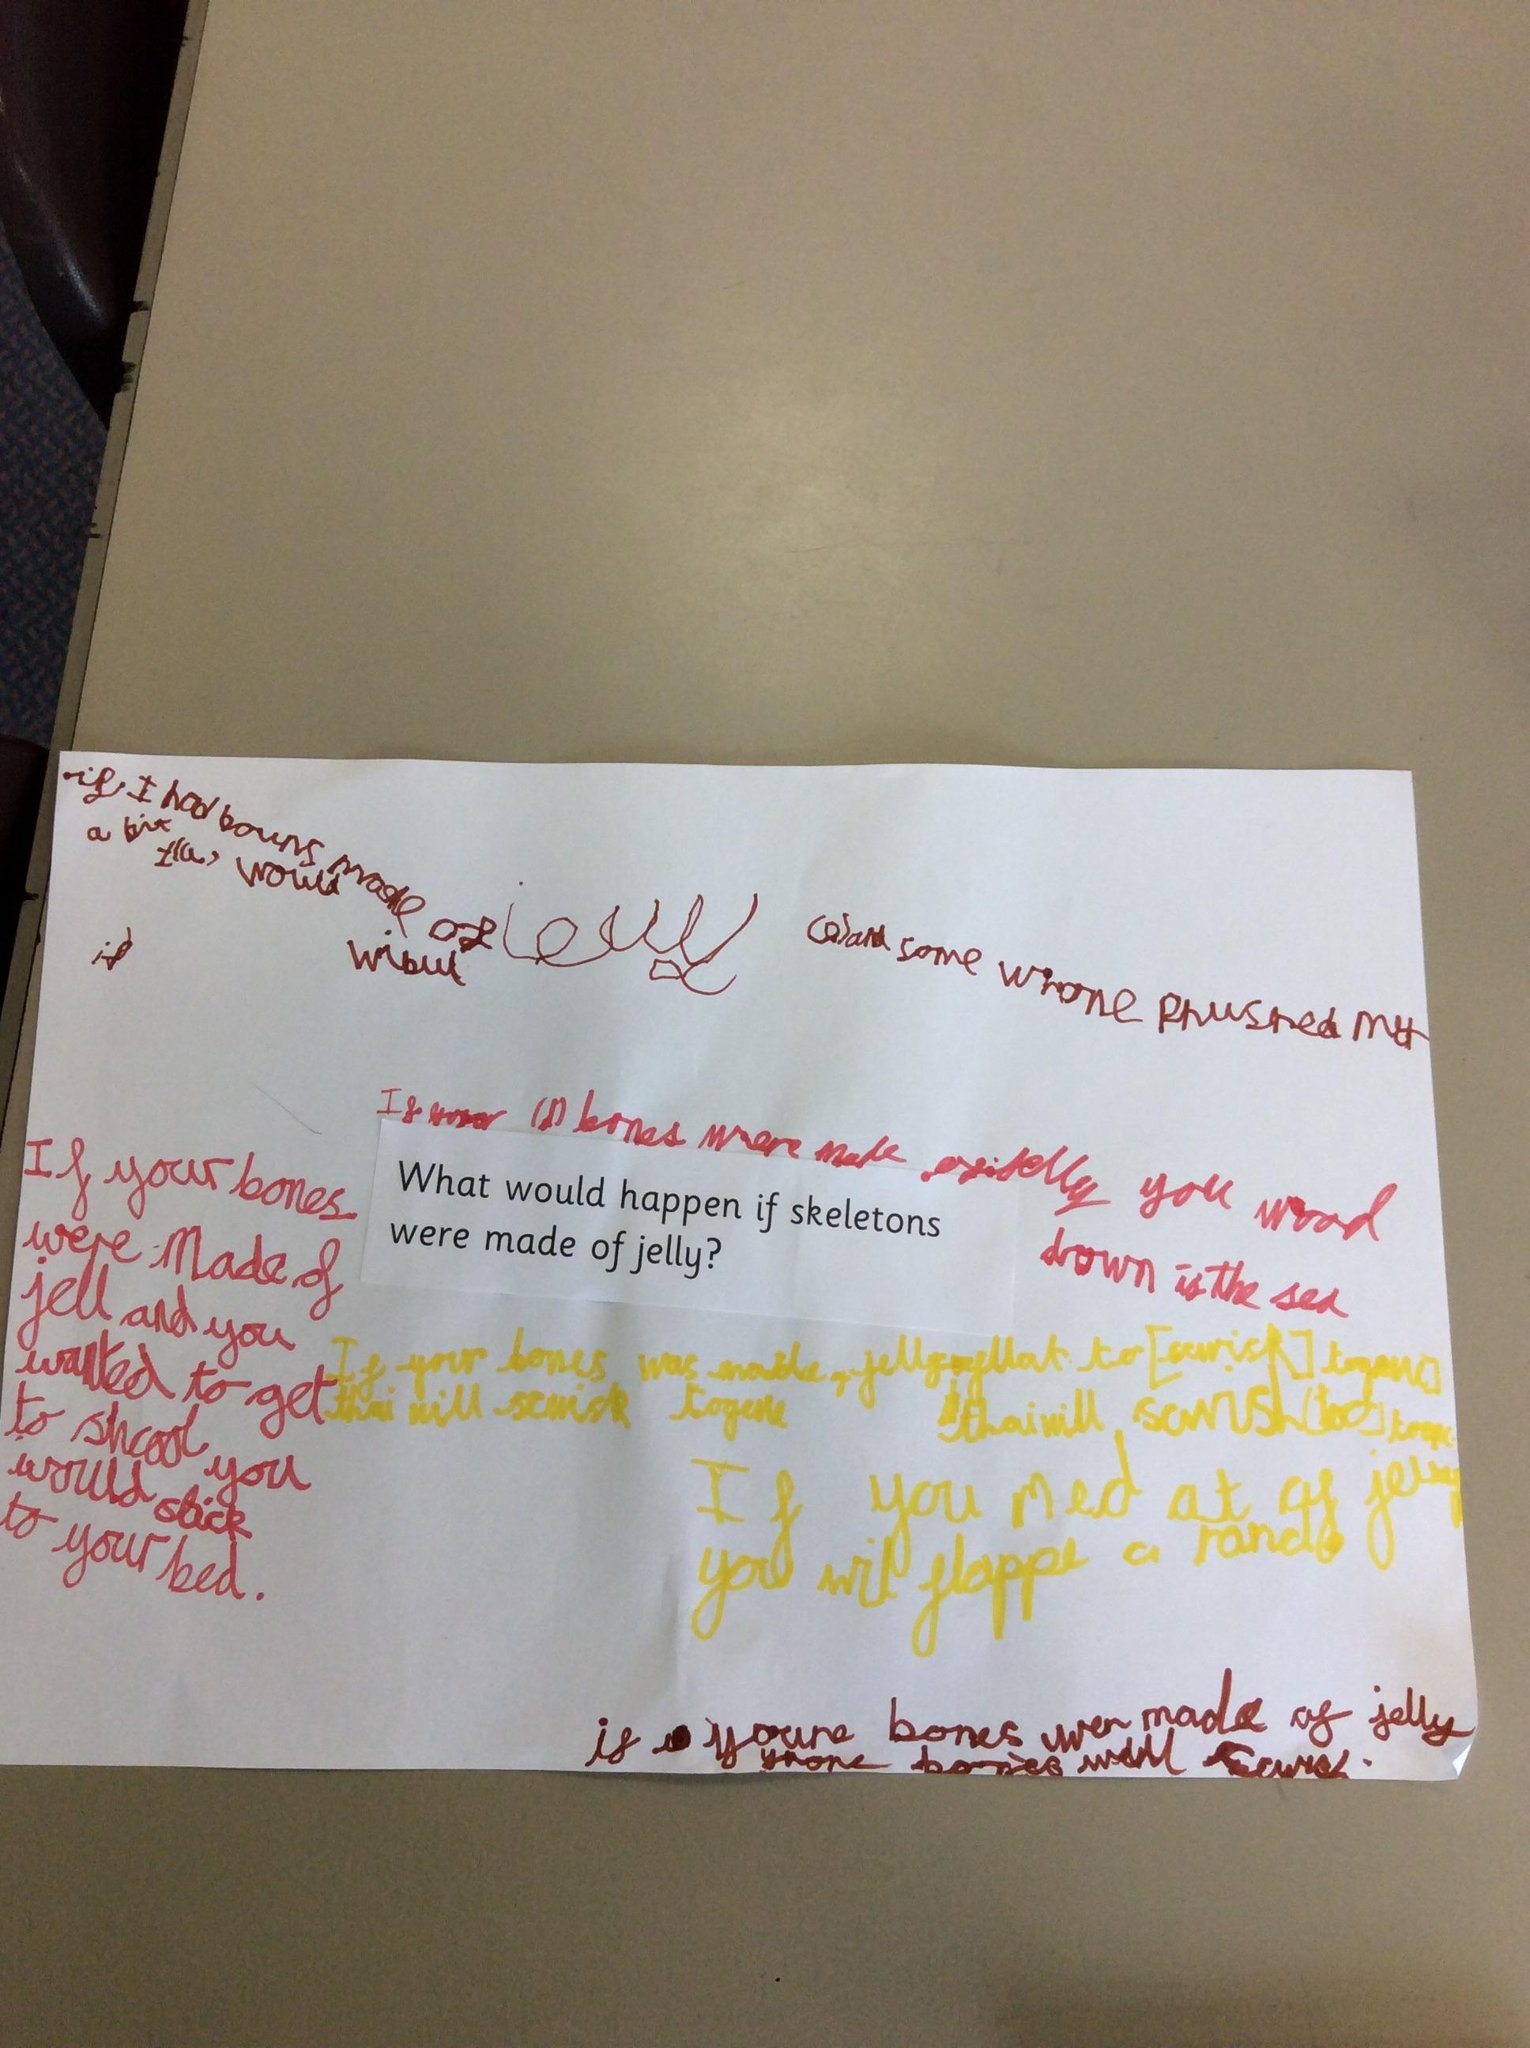 if I had bouns made of jelly and some wrone phushed me
a bit they would wibul
if
If bones were made of jelly you wood
drown is the sea
What would happen if skeletons
were made of jelly?
If your bones
were made of
jell and you
wanted to get
to shcool you
would stick
to your bed.
If your bones was made jelly to [scwish] togeve
thai will scwish togeve
thai will scwush
If you med at of jelly
you wil flappe a rand
if youre bones wer made of jelly
yrone bones will scwish.